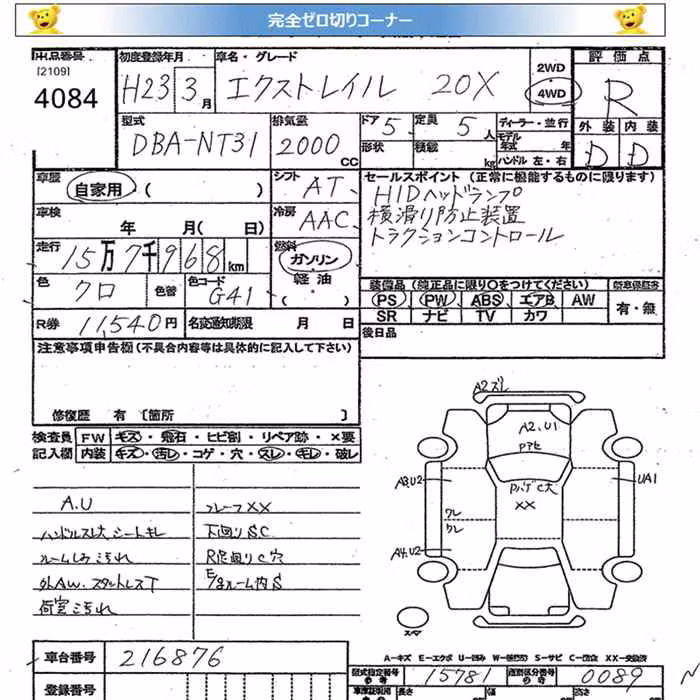 完全ゼロ切りコーナー
出品番号 初度登録年月 車名・グレード 2WD 評価点
[2109]
4084 H23 3月 エクストレイル 20X 4WD R
型式 排気量 ドア 5 定員 5人 ディーラー・並行 外装 内装
DBA-NT31 2000CC 形状 積載 kg モデル年式 年 D D
ハンドル 左・右
車歴 自家用 ( ) シフト AT セールスポイント (正常に機能するものに限ります)
HIDヘッドランプ
車検 年 月( 日) 冷房 AAC 横滑り防止装置
トラクションコントロール
走行 15万7千968km 燃料 ガソリン
軽油
色 クロ 色替 色コード G41 装備品 (純正品に限り○をつけてください) 新車保証書
PS PW ABS エアB AW 有・無
SR ナビ TV カワ
R券 11,540円 名変通知期限 月 日 後日品
注意事項申告欄(不具合内容等は具体的に記入して下さい)
修復歴 有 [箇所 ]
検査員 FW キズ・飛石・ヒビ割・リペア跡・×要
記入欄 内装 キズ・汚レ・コゲ・穴・スレ・キレ・破レ
A2ズレ
A2.U1
Pアセ
A3.U2 UA1
XX
クレ
クレ
A4.U2
スペア
A.U フレームXX
ハンドルスレ大 シートキレ 下回りSC
ルームしみこちれ R足廻りC穴
外AW.スタットレスT E/gルーム内S
荷室こちれ
A-キズ E-エクボ U-凹み W-修理跡 S-サビ C-腐食 XX-交換済
車台番号 216876
型式指定番号 15781 類別区分番号 0089 N
登録番号
長さ 幅 高さ